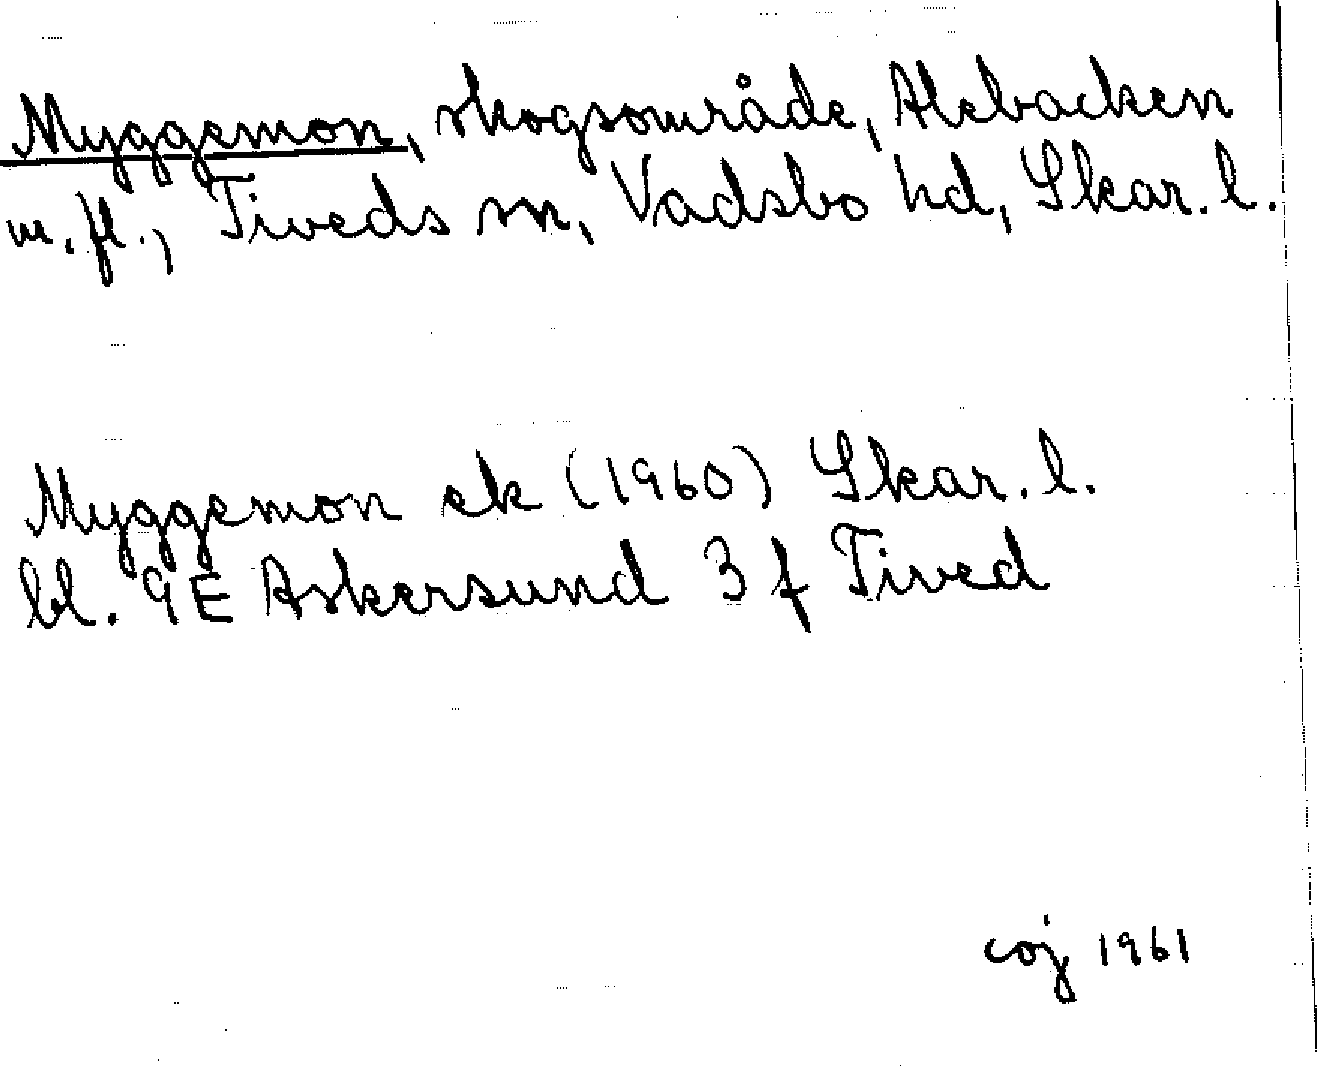 Myggemon, skogsområde, Alebacken
m. fl., Tiveds sn, Vadsbo hd, Skar. l.
Myggemon ek (1960) Skar. l.
bl. 9E Askersund 3 f Tived
coj 1961